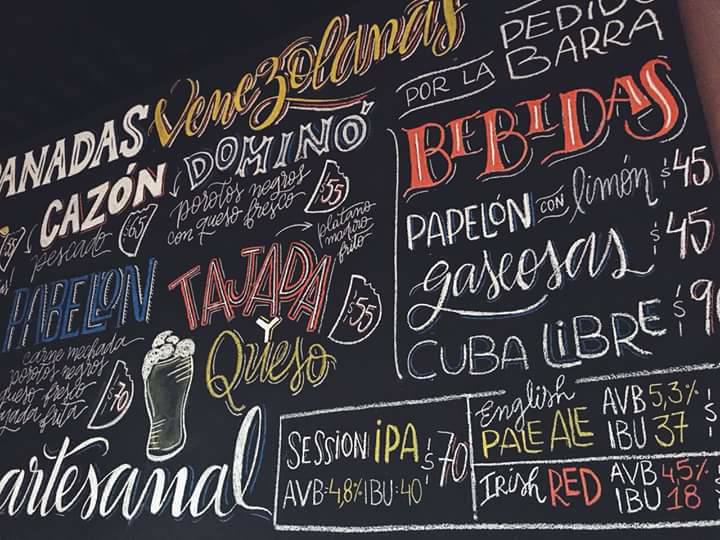 Venezolanas
CAZÓN
pescado
$65
DOMINÓ
porotos negros
con queso fresco
$55
PABELLON
carne mechada
porotos negros
queso fresco
$70
TAJADA
Y
Queso
platano
maduro
frito
$55
artesanal
PEDIDO
POR LA BARRA
BEBIDAS
PAPELÓN con limón $45
gaseosas $45
CUBA LIBRE $
SESSION IPA $70
AVB=4,8% IBU=40
English
PALE ALE
AVB 5,3%
IBU 37
Irish RED
AVB 4,5%
IBU 18